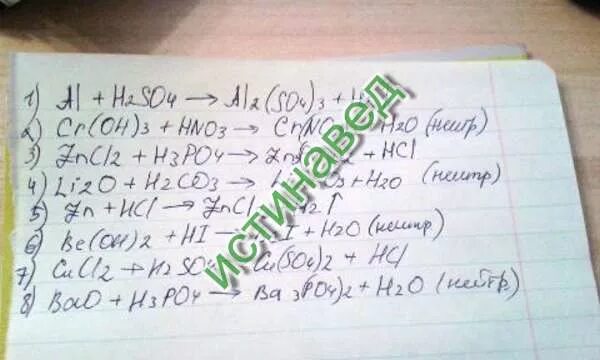 1) Al + H2SO4 → Al2(SO4)3 + H
2) Cr(OH)3 + HNO3 → Cr(NO H2O (нейтр)
3) ZnCl2 + H3PO4 → Zn 2 + HCl
4) Li2O + H2CO3 → O3 + H2O (нейтр)
5) Zn + HCl → ZnCl 2↑
6) Be(OH)2 + HI → I + H2O (нейтр)
7) CuCl2 + H2SO4 Cu(SO4)2 + HCl
8) BaO + H3PO4 → Ba3(PO4)2 + H2O (нейтр)
истинавед